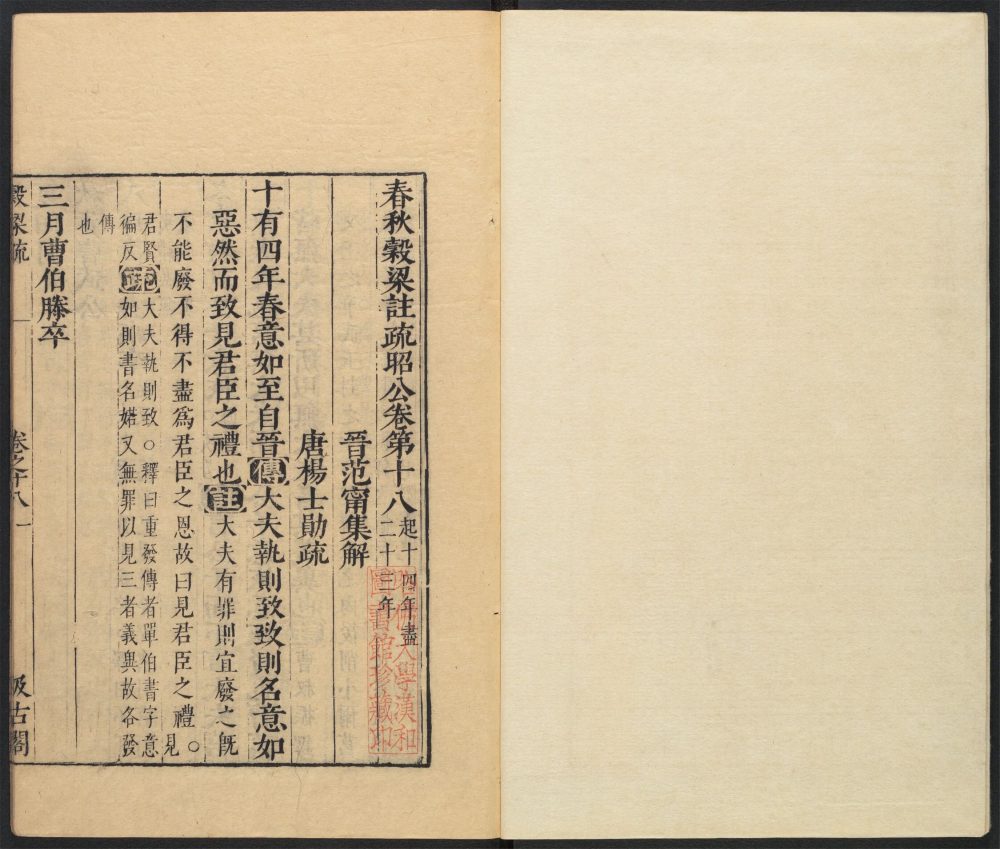 春秋穀梁註疏昭公卷第十八起十四年盡
二十三年
晉范甯集解
唐楊士勛疏
十有四年春意如至自晉傳大夫執則致致則名意如
惡然而致見君臣之禮也註大夫有罪則宜廢之旣
不能廢不得不盡為君臣之恩故曰見君臣之禮○見
君賢
徧反
疏大夫執則致○釋曰重發傳者單伯書字意
如則書名婼又無罪以見三者義異故各發
傳
也
三月曹伯滕卒
穀梁疏
卷之十八
一
汲古閣
哈佛大學漢和
圖書館珍藏印